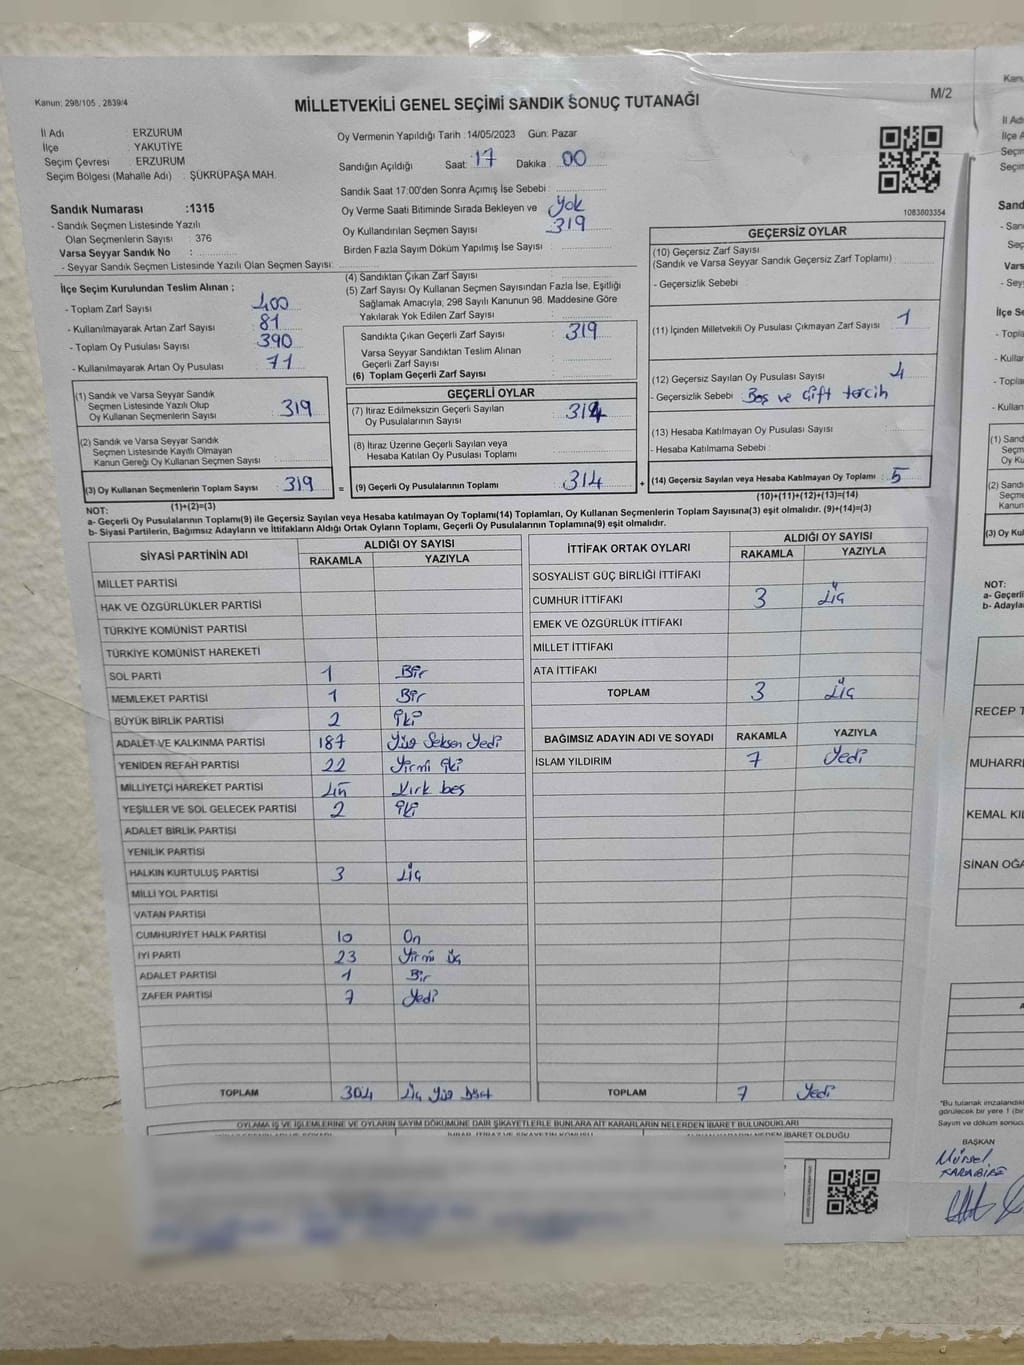 Kanun: 298/105 , 2839/4
MİLLETVEKİLİ GENEL SEÇİMİ SANDIK SONUÇ TUTANAĞI
M/2
İl Adı : ERZURUM
İlçe : YAKUTİYE
Seçim Çevresi : ERZURUM
Seçim Bölgesi (Mahalle Adı) : ŞÜKRÜPAŞA MAH.
Sandık Numarası :1315
- Sandık Seçmen Listesinde Yazılı
Olan Seçmenlerin Sayısı : 376
Varsa Seyyar Sandık No :
- Seyyar Sandık Seçmen Listesinde Yazılı Olan Seçmen Sayısı:
Oy Vermenin Yapıldığı Tarih : 14/05/2023 Gün: Pazar
Sandığın Açıldığı Saat: 17 Dakika: 00
Sandık Saat 17:00'den Sonra Açımış İse Sebebi :
Oy Verme Saati Bitiminde Sırada Bekleyen ve Yok
Oy Kullandırılan Seçmen Sayısı 319
Birden Fazla Sayım Döküm Yapılmış İse Sayısı
1083803354
İlçe Seçim Kurulundan Teslim Alınan ;
- Toplam Zarf Sayısı : 400
- Kullanılmayarak Artan Zarf Sayısı : 81
- Toplam Oy Pusulası Sayısı : 390
- Kullanılmayarak Artan Oy Pusulası : 71
(1) Sandık ve Varsa Seyyar Sandık
Seçmen Listesinde Yazılı Olup
Oy Kullanan Seçmenlerin Sayısı : 319
(2) Sandık ve Varsa Seyyar Sandık
Seçmen Listesinde Kayıtlı Olmayan
Kanun Gereği Oy Kullanan Seçmen Sayısı :
(3) Oy Kullanan Seçmenlerin Toplam Sayısı : 319
(1)+(2)=(3)
(4) Sandıktan Çıkan Zarf Sayısı :
(5) Zarf Sayısı Oy Kullanan Seçmen Sayısından Fazla İse, Eşitliği
Sağlamak Amacıyla; 298 Sayılı Kanunun 98. Maddesine Göre
Yakılarak Yok Edilen Zarf Sayısı :
Sandıkta Çıkan Geçerli Zarf Sayısı : 319
Varsa Seyyar Sandıktan Teslim Alınan
Geçerli Zarf Sayısı :
(6) Toplam Geçerli Zarf Sayısı :
GEÇERLİ OYLAR
(7) İtiraz Edilmeksizin Geçerli Sayılan
Oy Pusulalarının Sayısı : 314
(8) İtiraz Üzerine Geçerli Sayılan veya
Hesaba Katılan Oy Pusulası Toplamı :
= (9) Geçerli Oy Pusulalarının Toplamı : 314 +
GEÇERSİZ OYLAR
(10) Geçersiz Zarf Sayısı
(Sandık ve Varsa Seyyar Sandık Geçersiz Zarf Toplamı) :
- Geçersizlik Sebebi :
(11) İçinden Milletvekili Oy Pusulası Çıkmayan Zarf Sayısı : 1
(12) Geçersiz Sayılan Oy Pusulası Sayısı : 4
- Geçersizlik Sebebi : Boş ve Çift tercih
(13) Hesaba Katılmayan Oy Pusulası Sayısı :
- Hesaba Katılmama Sebebi :
(14) Geçersiz Sayılan veya Hesaba Katılmayan Oy Toplamı : 5
(10)+(11)+(12)+(13)=(14)
NOT:
a- Geçerli Oy Pusulaları Toplamı(9) ile Geçersiz Sayılan veya Hesaba katılmayan Oy Toplamı(14) Toplamları, Oy Kullanan Seçmenlerin Toplam Sayısına(3) eşit olmalıdır. (9)+(14)=(3)
b- Siyasi Partilerin, Bağımsız Adayların ve İttifakların Aldığı Ortak Oyların Toplamı, Geçerli Oy Pusulalarının Toplamına(9) eşit olmalıdır.
SİYASİ PARTİNİN ADI ALDIĞI OY SAYISI
RAKAMLA YAZIYLA
MİLLET PARTİSİ
HAK VE ÖZGÜRLÜKLER PARTİSİ
TÜRKİYE KOMÜNİST PARTİSİ
TÜRKİYE KOMÜNİST HAREKETİ
SOL PARTİ 1 Bir
MEMLEKET PARTİSİ 1 Bir
BÜYÜK BİRLİK PARTİSİ 2 İki
ADALET VE KALKINMA PARTİSİ 187 Yüz Seksen Yedi
YENİDEN REFAH PARTİSİ 22 Yirmi iki
MİLLİYETÇİ HAREKET PARTİSİ 45 Kırk beş
YEŞİLLER VE SOL GELECEK PARTİSİ 2 İki
ADALET BİRLİK PARTİSİ
YENİLİK PARTİSİ
HALKIN KURTULUŞ PARTİSİ 3 Üç
MİLLİ YOL PARTİSİ
VATAN PARTİSİ
CUMHURİYET HALK PARTİSİ 10 On
İYİ PARTİ 23 Yirmi üç
ADALET PARTİSİ 1 Bir
ZAFER PARTİSİ 7 Yedi
TOPLAM 304 Üç Yüz Dört
İTTİFAK ORTAK OYLARI ALDIĞI OY SAYISI
RAKAMLA YAZIYLA
SOSYALİST GÜÇ BİRLİĞİ İTTİFAKI
CUMHUR İTTİFAKI 3 Üç
EMEK VE ÖZGÜRLÜK İTTİFAKI
MİLLET İTTİFAKI
ATA İTTİFAKI
TOPLAM 3 Üç
BAĞIMSIZ ADAYIN ADI VE SOYADI RAKAMLA YAZIYLA
İSLAM YILDIRIM 7 Yedi
TOPLAM 7 Yedi
OYLAMA İŞ VE İŞLEMLERİNE VE OYLARIN SAYIM DÖKÜMÜNE DAİR ŞİKAYETLERLE BUNLARA AİT KARARLARIN NELERDEN İBARET BULUNDUKLARI
İBARET OLDUĞU
Kanu
İl Adı
İlçe A
Seçim
Seçim
Sand
- San
Seç
Varsa
- Sey
İlçe Se
- Topla
- Kullan
- Toplam
- Kullan
(1) Sand
Seçm
Oy Ku
(2) Sand
Seçme
Kanun
(3) Oy Ku
NOT:
a- Geçerli
b- Adayla
RECEP T
MUHARRE
KEMAL KIL
SİNAN OĞA
"Bu tutanak imzalandıkt
görülecek bir yere 1 (bir
Sayım ve döküm sonucu
BAŞKAN
Mürsel
KARABİBE